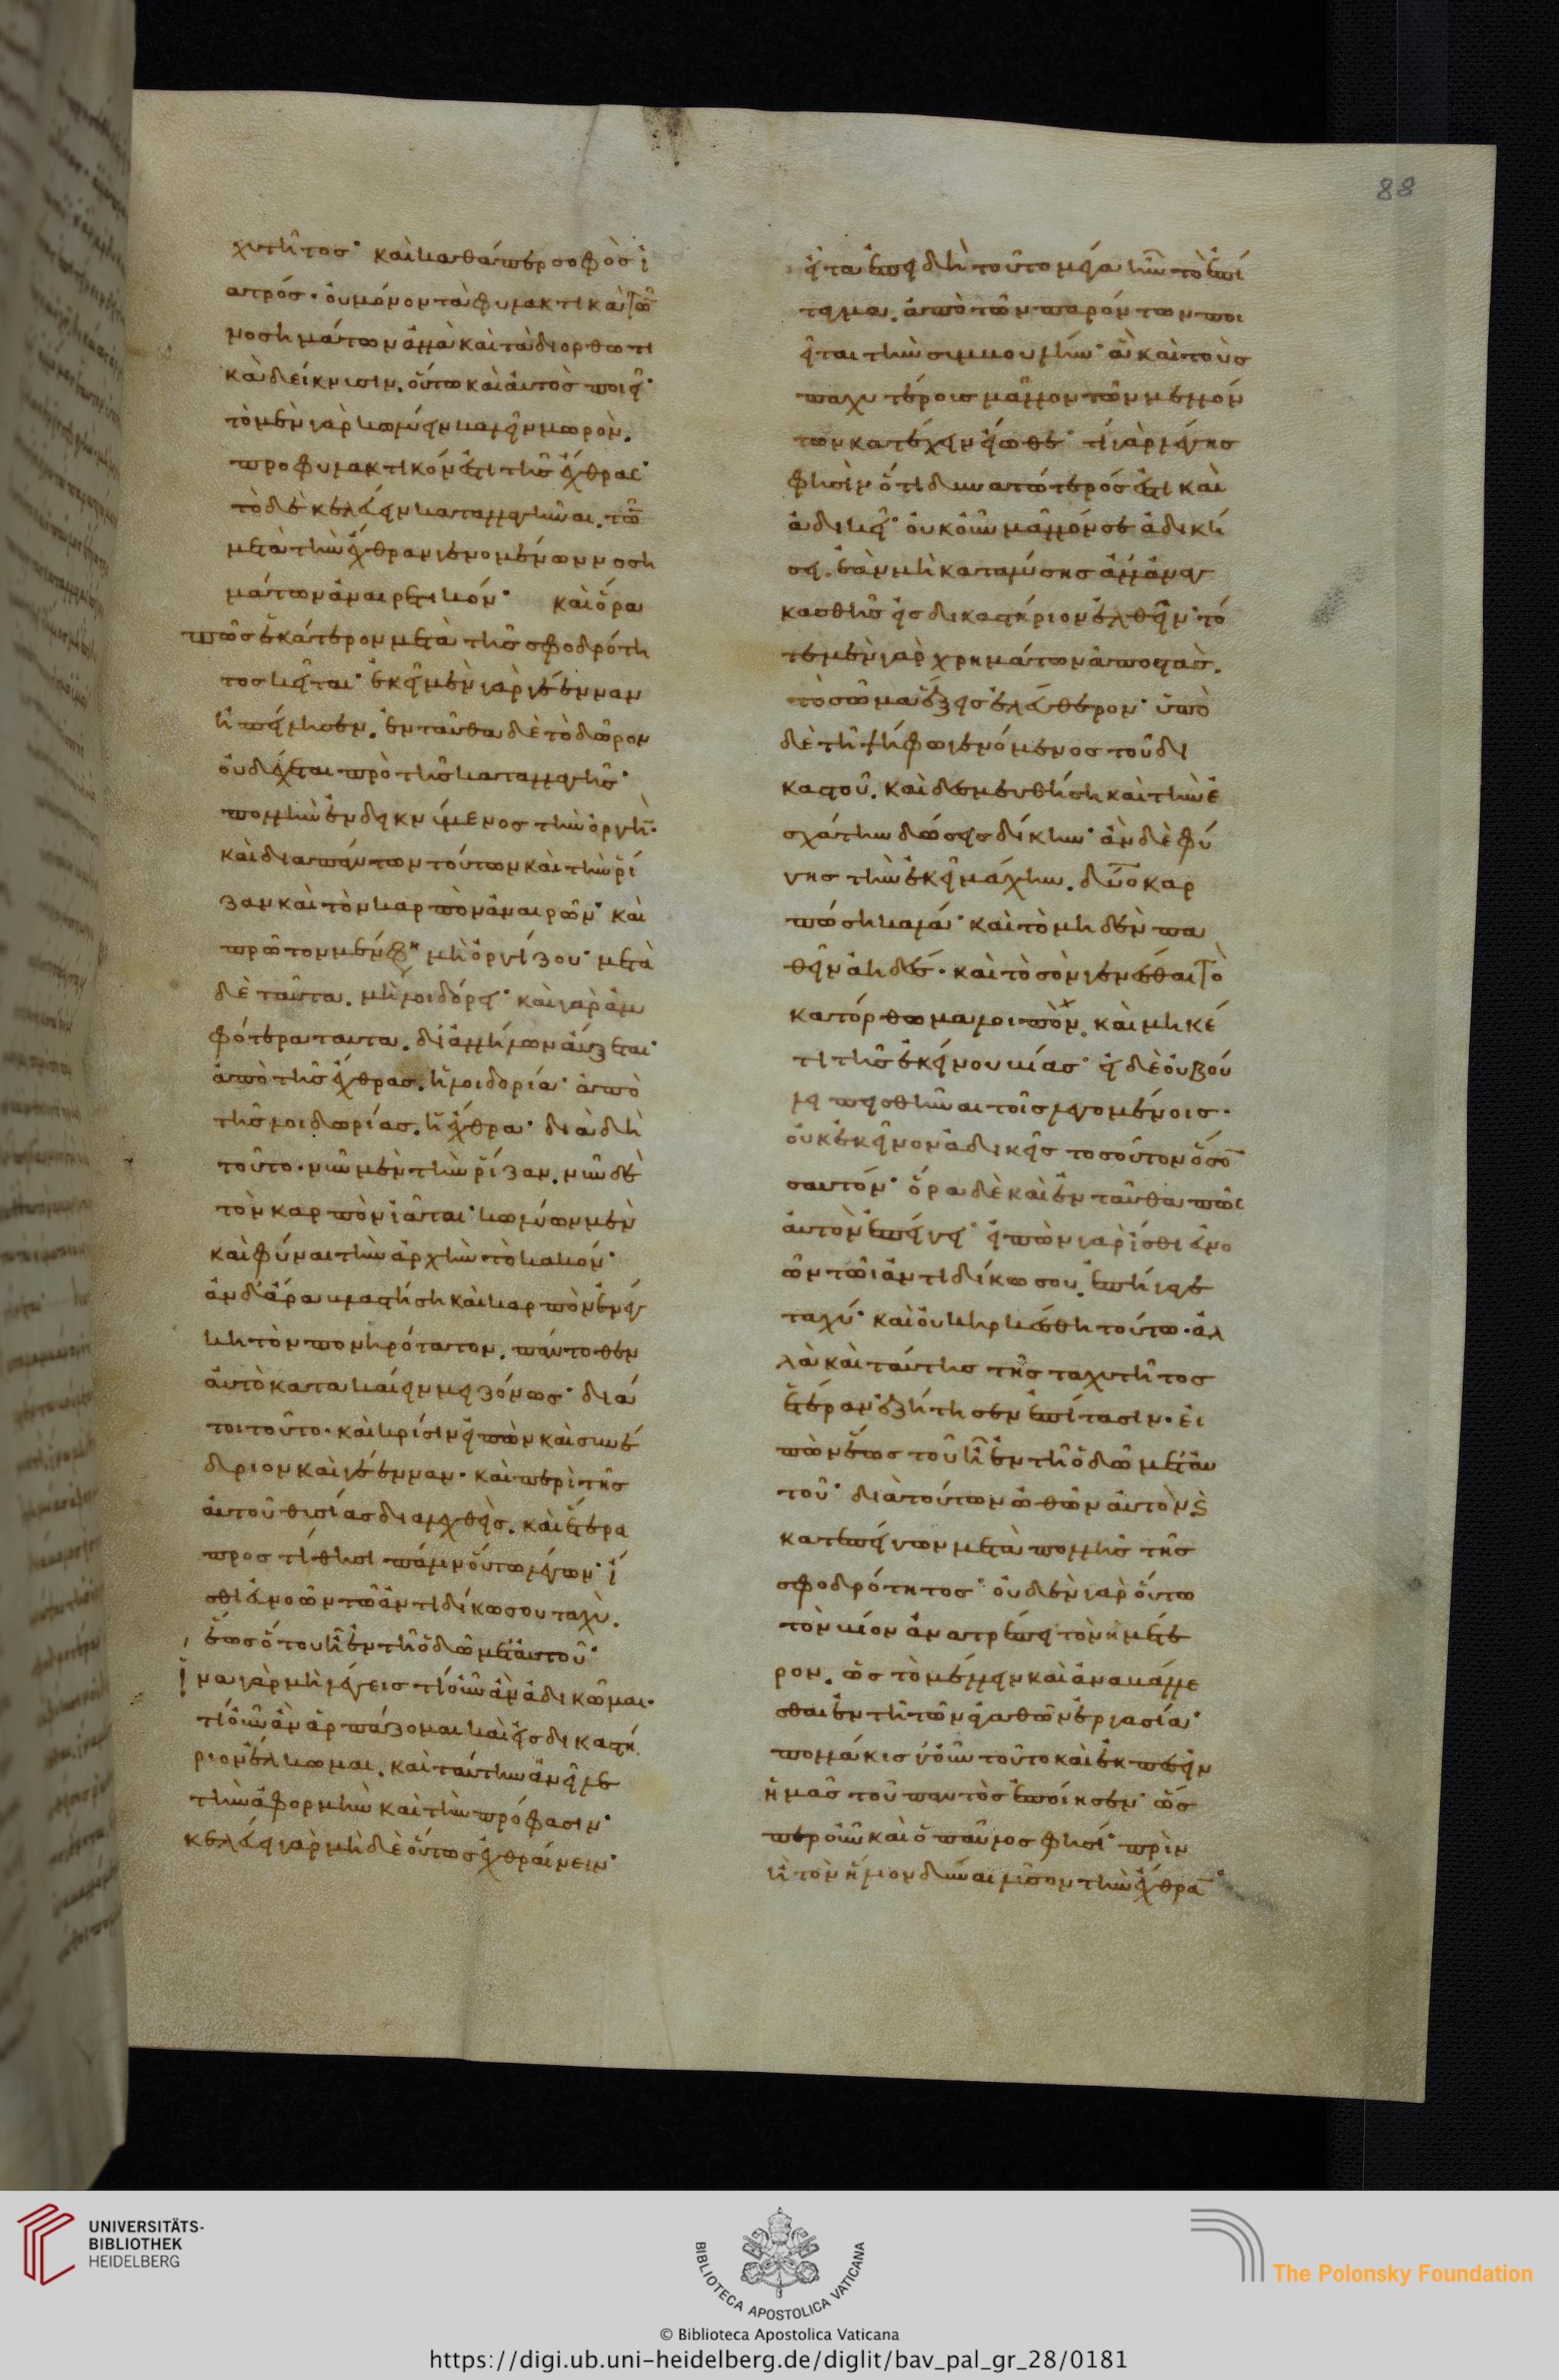 88
χυτῆτος· καὶ καθάπερ σοφὸς ἰ
ατρός· οὐ μόνον τὰ φυλακτικὰ τῶν
νοσημάτων ἀλλὰ καὶ τὰ διορθωτι
κὰ δείκνυσιν. οὕτω καὶ αὐτὸς ποιεῖ·
τὸ μὲν γὰρ κωλύειν καλεῖν μωρὸν.
προφυλακτικόν ἐστι τῆς ἔχθρας·
τὸ δὲ κελεύειν καταλλαγῆναι. τῶν
μετὰ τὴν ἔχθραν γενομένων νοση
μάτων ἀναιρετικόν· καὶ ὅρα
πῶς ἑκάτερον μετὰ τῆς σφοδρότη
τος κεῖται· ἐκεῖ μὲν γὰρ γέενναν
ἠπείλησεν. ἐνταῦθα δὲ τὸ δῶρον
οὐ δέχεται πρὸ τῆς καταλλαγῆς·
πολλὴν ἐνδεικνύμενος τὴν ὀργήν·
καὶ διὰ πάντων τούτων καὶ τὴν ῥί
ζαν καὶ τὸν καρπὸν ἀναιρῶν· καὶ
πρῶτον μέν φη μὴ ὀργίζου· μετὰ
δὲ ταῦτα. μὴ λοιδόρει· καὶ γὰρ ἀμ
φότερα ταυτα. δι ἀλλήλων αὔξεται·
ἀπὸ τῆς ἔχθρας. ἡ λοιδορία· ἀπὸ
τῆς λοιδωρίας. ἡ ἔχθρα· διὰ δὴ
τοῦτο· νῦν μὲν τὴν ῥίζαν. νῦν δὲ
τὸν καρπὸν ἰᾶται· κωλύων μὲν
καὶ φύναι τὴν ἀρχὴν τὸ κακόν·
ἂν δ ἄρα βλαστήσῃ καὶ καρπὸν ἐνέγ
κη τὸν πονηρότατον. πάντοθεν
αὐτὸ κατακαίειν μειζόνως· διά
τοι τοῦτο· καὶ κρίσιν εἰπὼν καὶ συνέ
δριον καὶ γέενναν· καὶ περὶ τῆς
αὐτοῦ θυσίας διαλεχθεὶς. καὶ ἕτερα
προστίθησι πάλιν οὕτω λέγων· ἴ
σθι εὐνοῶν τῶ ἀντιδίκω σου ταχὺ.
ἕως ὅτου εἶ ἐν τῇ ὁδῶ μετ αὐτοῦ·
ἵνα γὰρ μὴ λέγεις τί οὖν ἂν ἀδικῶμαι·
τί οὖν ἂν ἁρπάζομαι καὶ εἰς δικαστή
ριον ἕλκωμαι. καὶ ταύτην ἀνεῖλε
τὴν ἀφορμὴν καὶ τὴν πρόφασιν·
κελεύει γὰρ μὴ δὲ οὕτως ἐχθραίνειν·
εἶτα ἐπειδὴ τοῦτο μέγα ἦν τὸ ἐπί
ταγμα. ἀπὸ τῶν παρόντων ποι
εῖται τὴν συμβουλήν· ἃ καὶ τοὺς
παχυτέροις μᾶλλον τῶν μελλόν
των κατέχειν εἴωθε· τί γὰρ λέγης
φησὶν ὅτι δυνατώτερός ἐστι καὶ
ἀδικεῖ· οὐκοῦν μᾶλλόν σε ἀδική
σει. ἐὰν μὴ καταλύσης ἀλλ ἀναγ
κασθῆς εἰς δικαστήριον ἐλθεῖν· τό
τε μὲν γὰρ χρημάτων ἀποστὰς.
τὸ σῶμα ἕξεις ἐλεύθερον· ὑπὸ
δὲ τῆ ψήφω γενόμενος τοῦ δι
καστοῦ. καὶ δεσμευθήση καὶ τὴν ἐ
σχάτην δώσεις δίκην· ἂν δὲ φύ
γης τὴν ἐκεῖ μάχην. δύο καρ
πώση καλά· καὶ τὸ μηδὲν πα
θεῖν ἀηδές· καὶ τὸ σὸν γενέσθαι τὸ
κατόρθωμα λοιπὸν. καὶ μηκέ
τι τῆς ἐκείνου βίας· εἰ δὲ οὐ βού
λει πεισθῆναι τοῖς λεγομένοις·
οὐκ ἐκεῖνον ἀδικεῖς τοσοῦτον ὅσον
σαυτόν· ὅρα δὲ καὶ ἐνταῦθα πῶς
αὐτὸν ἐπείγει· εἰπὼν γὰρ ἴσθι εὐνο
ῶν τῶι ἀντιδίκω σου. ἐπήγαγε
ταχύ· καὶ οὐκ ἠρκέσθη τούτω· ἀλ
λὰ καὶ ταύτης τῆς ταχυτῆτος
ἑτέραν ἐζήτησεν ἐπίτασιν· εἰ
πὼν ἕως τοῦ εἶ ἐν τῇ ὁδῶ μετ αὐ
τοῦ· διὰ τούτων ὠθῶν αὐτὸν καὶ
κατεπείγων μετὰ πολλῆς τῆς
σφοδρότητος· οὐδὲν γὰρ οὕτω
τὸν βίον ἀνατρέπει τὸν ἡμέτε
ρον. ὡς τὸ μέλλειν καὶ ἀναβάλλε
σθαι ἐν τῆ τῶν ἀγαθῶν ἐργασία·
πολλάκις γοῦν τοῦτο καὶ ἐκπεσεῖν
ἡμᾶς τοῦ παντὸς ἐποίησεν· ὥς
περ οὖν καὶ ὁ παῦλος φησί· πρὶν
ἢ τὸν ἥλιον δῦναι λῦσον τὴν ἔχθραν·
UNIVERSITÄTS-
BIBLIOTHEK
HEIDELBERG
BIBLIOTECA APOSTOLICA VATICANA
The Polonsky Foundation
© Biblioteca Apostolica Vaticana
https://digi.ub.uni-heidelberg.de/diglit/bav_pal_gr_28/0181